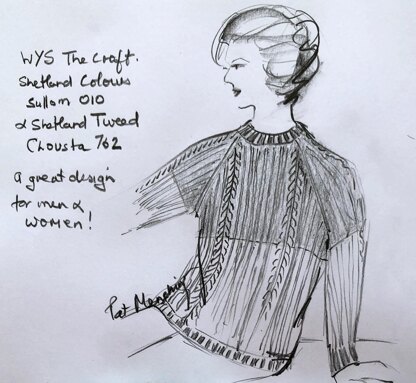 WYS The Craft.
Shetland Colours
Sullom 010
& Shetland Tweed
Chousta 762
a great design
for men &
women!
Pat Menchini